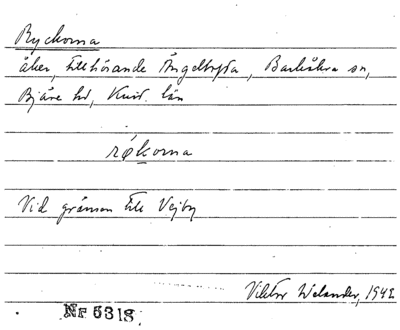 Ryckorna
åker, tillhörande Ängeltofta, Barkåkra sn,
Bjäre hd, Krist. län
røkorna
Vid gränsen till Vejby
Viktor Welander, 1942
Nr 5318.